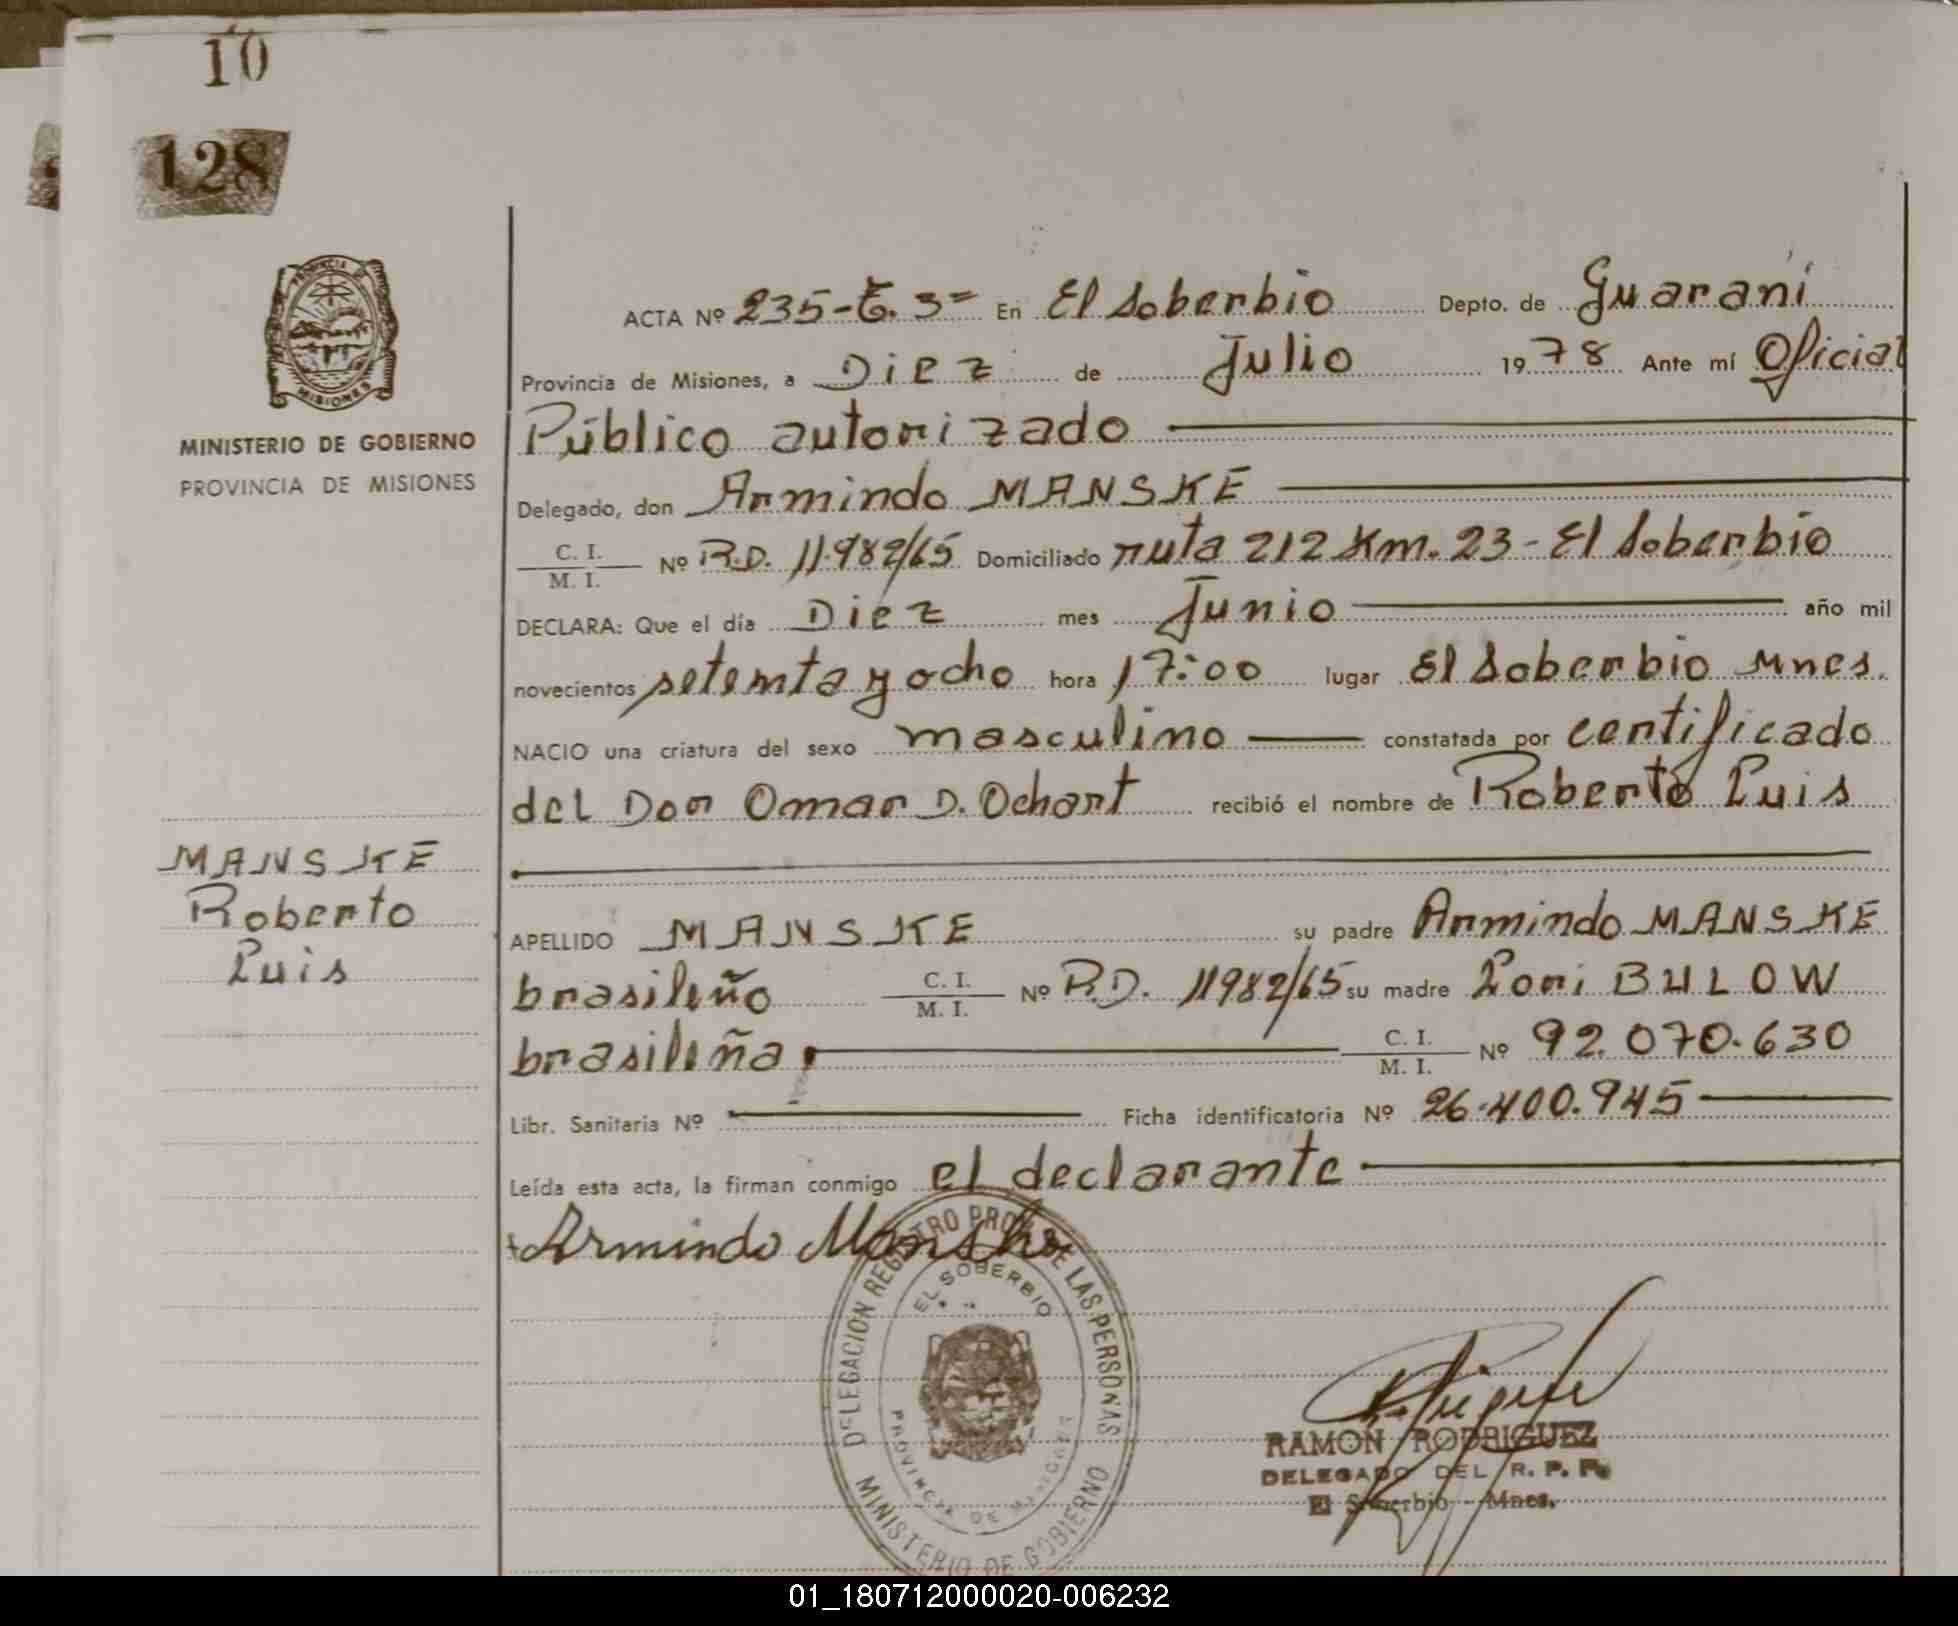 10
128
MINISTERIO DE GOBIERNO
PROVINCIA DE MISIONES
MANSKE
Roberto
Luis
ACTA Nº 235-T. 3º En El Soberbio Depto. de Guaraní
Provincia de Misiones, a Diez de Julio 1978 Ante mí Oficial
Público autorizado
Delegado, don Armindo MANSKE
C. I.
M. I.
Nº R.D. 11.982/65 Domiciliado ruta 212 Km. 23 - El Soberbio
DECLARA: Que el día Diez mes Junio año mil
novecientos setenta y ocho hora 17:00 lugar El Soberbio Mnes.
NACIO una criatura del sexo masculino constatada por certificado
del Dor Omar D. Ochart recibió el nombre de Roberto Luis
APELLIDO MANSKE su padre Armindo MANSKE
brasileño C. I. M. I. Nº R.D. 11982/65 su madre Lori BULOW
brasileña C. I. M. I. Nº 92.070.630
Libr. Sanitaria Nº Ficha identificatoria Nº 26.400.945
Leída esta acta, la firman conmigo el declarante
Armindo Manske
DELEGACION REGISTRO PROV. DE LAS PERSONAS
EL SOBERBIO
PROVINCIA DE MISIONES
MINISTERIO DE GOBIERNO
RAMON RODRIGUEZ
DELEGADO DEL R. P. P.
El Soberbio - Mnes.
01_180712000020-006232